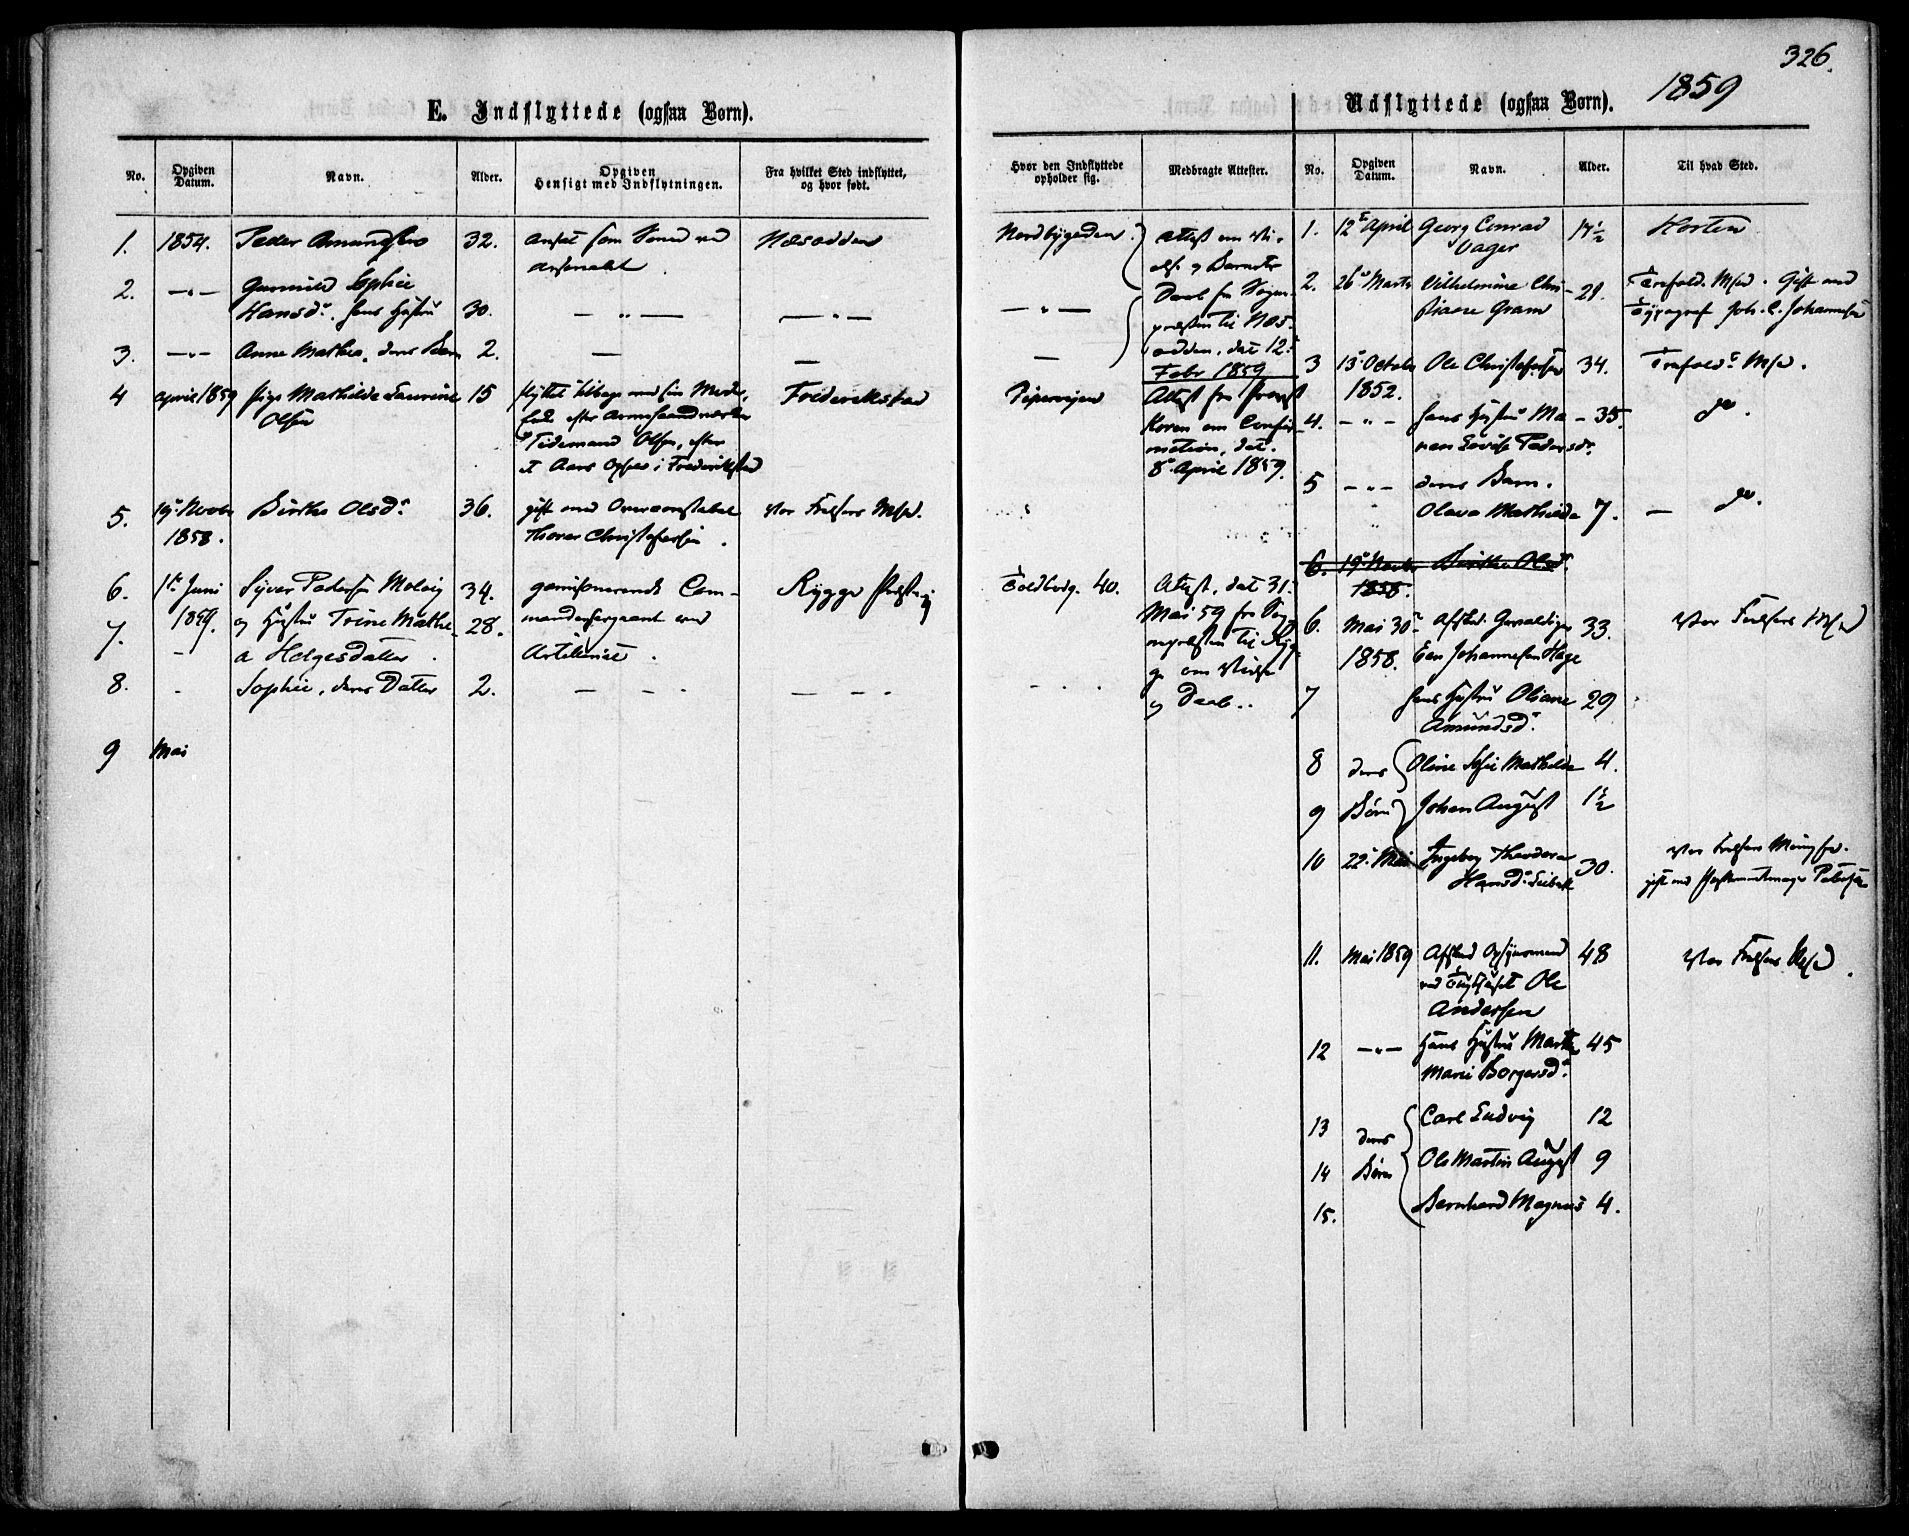 326.
1859
E. Indflyttede (ogsaa Børn).
No.
Opgiven Datum.
Navn.
Alder.
Opgiven Hensigt med Indflytningen.
Fra hvilket Sted indflyttet, og hvor født.
Hvor den Indflyttede opholder sig.
Medbragte Attester.
1. 1854. Peder 32. ansat som ved Næsodden Nordbygaden Attest om
2. —"— Gunnild Sophie
Hansd. hans Hustru 30. — " — — " — — " —
3. —"— Anne Mathea, deres Barn 2. — — —
Daab fra Sogne-
præsten til Næs-
odden, dat 12.
Febr 1859
4 April 1859 Pige Mathilde Laurine 15 flyttet tilbage med sin Moder, Frederikstad Pipervigen Attest fra Provst
Olsen
Tidemand Olsen, efter
et Aars Ophold i Frederikstad
Koren om Confir-
mation, dat.
8. April 1859.
5. 19. Novbr Birthe Olsd. 36. gift med Overconstabel Vor Frelsers Msd.
1858. Thorer Christophersen.
6. 1ste Juni Syver Pedersen Molvig 34. Com- Rygge Præstegj Toldbodg. 40. Attest, dat 31.
1859.
7. - og Hustru Trine Mathe- 28. mandersergeant ved
a Helgesdatter. Artilleriet.
Mai 59 fra Sog-
nepræsten til Ryg-
ge om Vielse
og Daab.
8. - Sophie, deres Datter 2. — — - — - - - - -
9 Mai
Udflyttede (ogsaa Børn).
No.
Opgiven Datum.
Navn.
Alder.
Til hvad Sted.
1. 12te April Georg Conrad 17½ Horten
Vager
2. 26 Marts Vilhelmine Chri- 21. Trefold. Msd. Gift med
stiane Gram Typograf Joh. C. Johannesen
3 15. Octobr Ole Christophersen 34. Trefold. Msd.
1852.
4. — " — hans Hustru Ma- 35. do.
ren Lovise Pedersd.
5 — " — deres Barn.
" Olava Mathilde 7. — do.
6. 19. Novbr Birthe Olsd.
1858.
6. Mai 30. Afsked. Gevaldiger 33. Vor Frelsers Msd
1858. Even Johannesen Hage
7 hans Hustru Oliane 29
Amundsd.
8 deres Oline Sofie Mathilde 4.
9 Børn Johan August 1½
10 22. Mai Ingeborg Theodora 30. Vor Frelsers Menighed.
Hansd. gift med Petersen
11. Mai 1859 Afsked Opsynsmand 48 Vor Frelsers Msd.
ved Tøyhuset Ole
Andersen
12 — " — Hans Hustru Marthe 45
Marie Borgersd.
13 deres Carl Ludvig 12
14 Børn Ole Martin August 9
15. Bernhard Magnus 4.